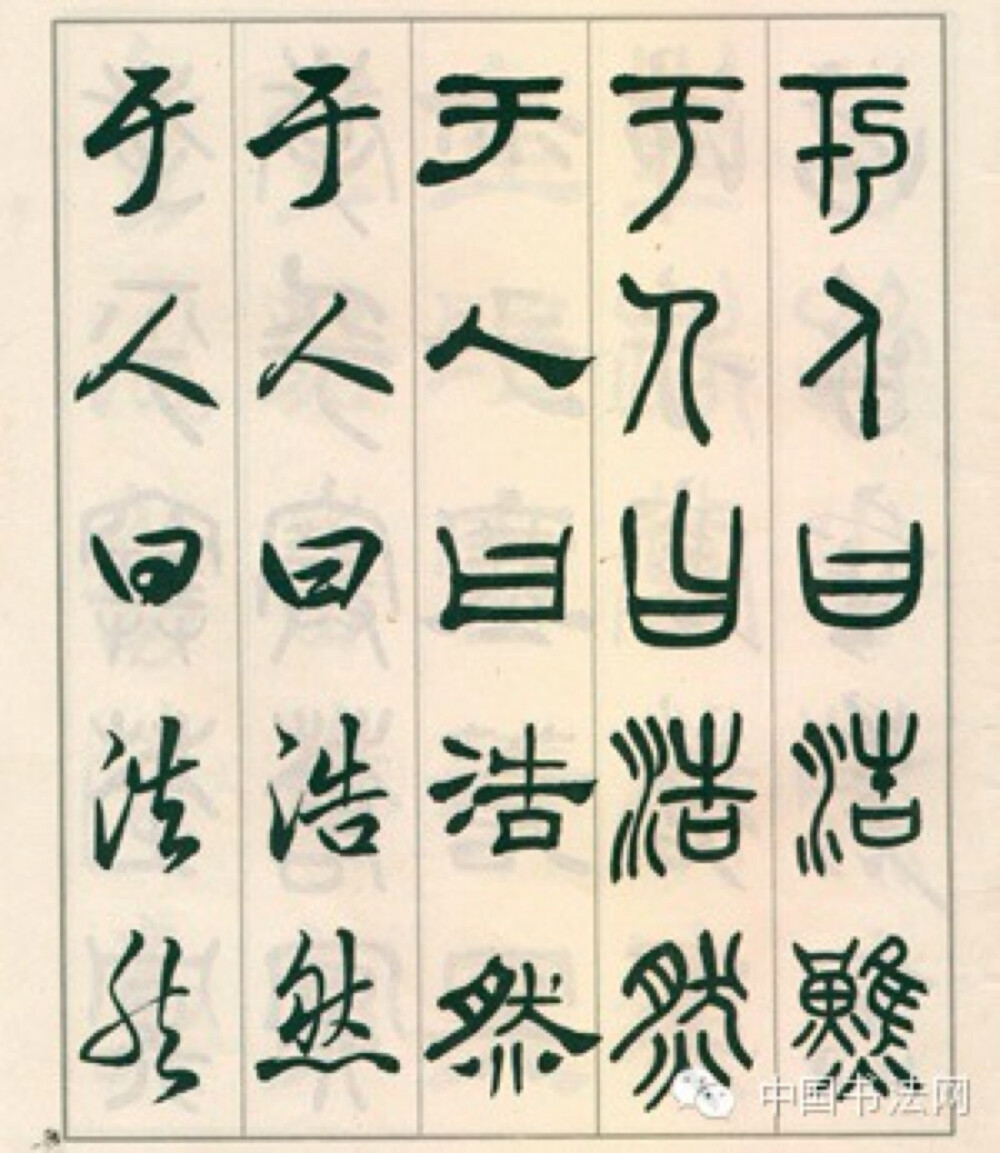 于人曰浩然
于人曰浩然
于人曰浩然
于人曰浩然
于人曰浩然
中国书法网